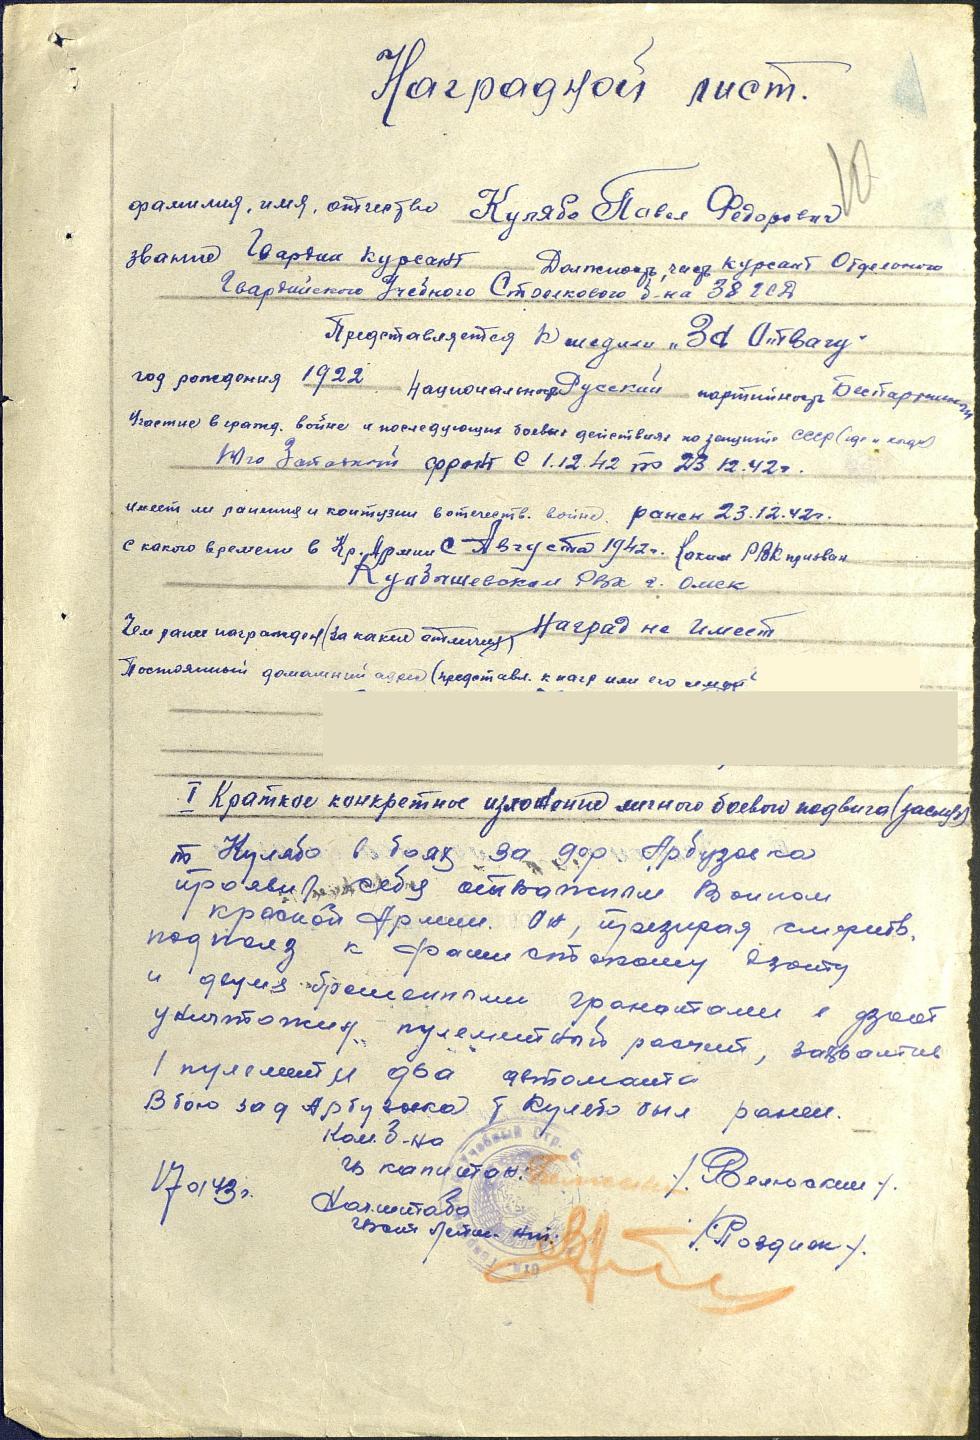 Наградной лист.
10
фамилия, имя, отчество Кулябо Павел Федорович
звание Гвардии курсант Должность, часть курсант Отдельного
Гвардейского Учебного Стрелкового б-на 38 ГСД
Представляется к медали "За Отвагу"
год рождения 1922 Национальность Русский партийность Беспартийный
Участие в гражд. войне и последующих боевых действиях по защите СССР (где и когда)
Юго Западный фронт с 1.12.42 по 23.12.42г.
имеет ли ранения и контузии в отечеств. войне. ранен 23.12.42г.
с какого времени в Кр. Армии с Августа 1942г. Каким РВК призван
Куйбышевским РВК г. Омск
Чем ранее награжден (за какие отличия) Наград не имеет
Постоянный домашний адрес (представл. к нагр или его семьи
I Краткое конкретное изложение личного боевого подвига (заслуг)
т Кулябо в боях за дер Арбузовка
проявил себя отважным воином
красной Армии. Он, призирая смерть,
подполз к фашистскому дзоту
и двумя брошенными гранатами в дзот
уничтожил пулеметный расчет, захватив
1 пулемет и два автомата
В бою за д Арбузовка т Кулябо был ранен.
Ком. б-на
гв капитан /Велюский/.
17 01 43г. Нач. штаба
/Поздняк/.